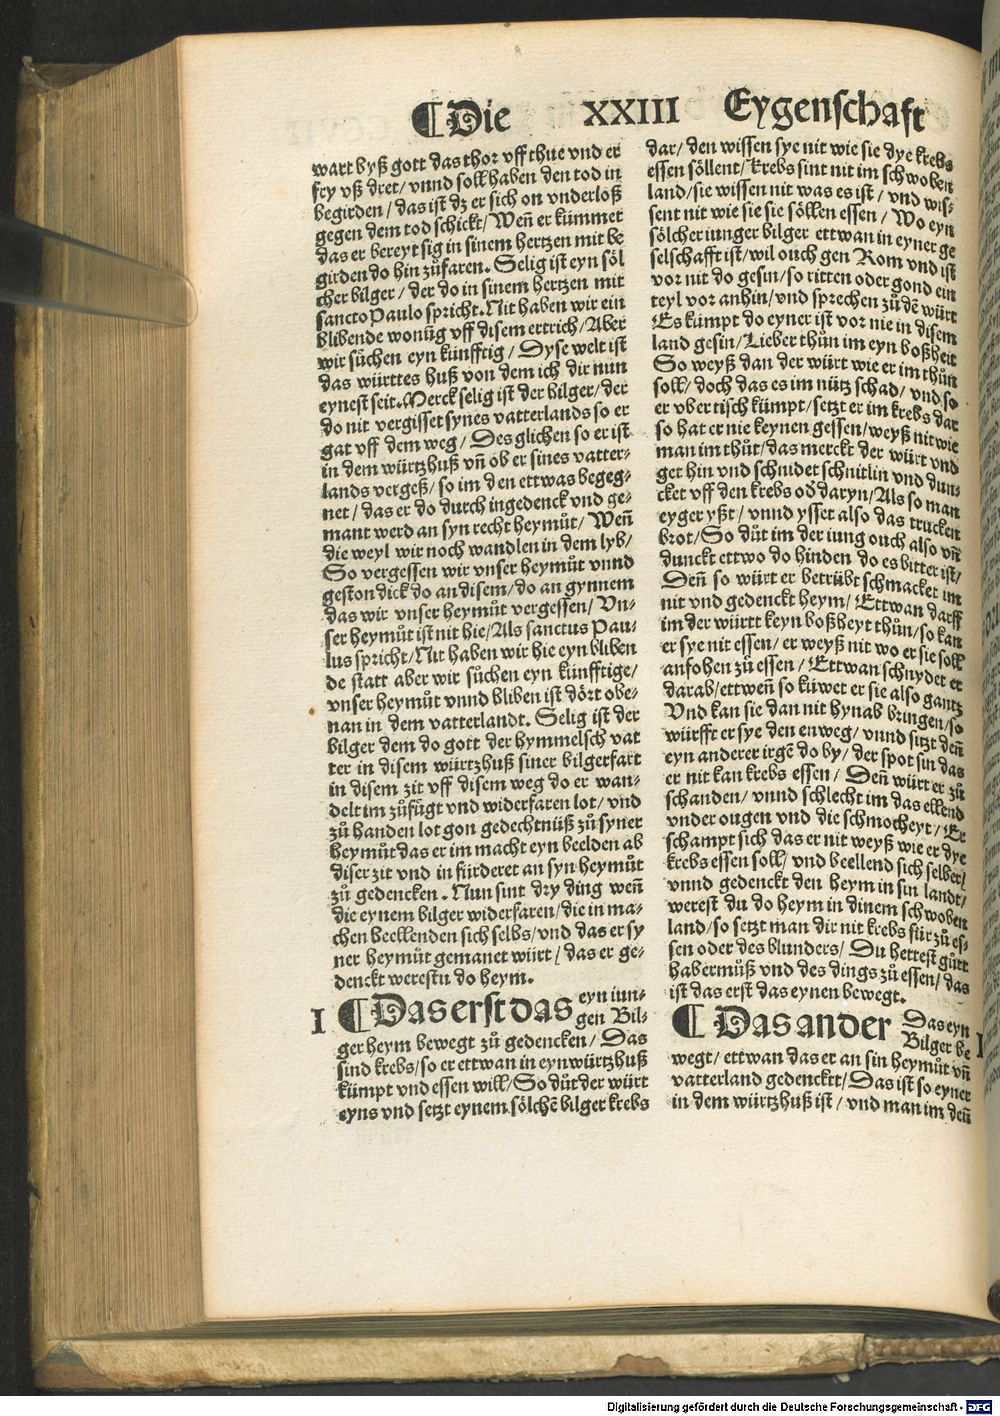 ¶Die XXIII Eygenschaft
wart byß gott das thor vff thue vnd er
fry vß dret/ vnnd soll haben den tod in
begirden/ das ist dz er sich on vnderloß
gegen dem tod schickt/ Weñ er kümmet
das er bereyt sig in sinem hertzen mit be
girden do hin zůfaren. Selig ist eyn söl
cher bilger/ der do in sinem hertzen mit
sancto Paulo spricht. Nit haben wir ein
blibende wonūg vff disem ertrich/ Aber
wir sůchen eyn künfftig/ Dyse welt ist
das württes huß von dem ich dir nun
eynest seit. Merck selig ist der bilger/ der
do nit vergisset synes vatterlands so er
gat vff dem weg/ Des glichen so er ist
in dem würtzhuß vñ ob er sines vatter-
lands vergeß/ so im den ettwas begeg-
net/ das er do durch ingedenck vnd ge-
mant werd an syn recht heymůt/ Weñ
die weyl wir noch wandlen in dem lyb/
So vergessen wir vnser heymůt vnnd
geston dick do an disem/ do an gynnem
das wir vnser heymůt vergessen/ Vn-
ser heymůt ist nit hie/ Als sanctus Pau-
lus spricht/ Nit haben wir hie eyn bliben
de statt aber wir sůchen eyn künfftige/
vnser heymůt vnnd bliben ist dört obe-
nan in dem vatterlandt. Selig ist der
bilger dem do gott der hymmelsch vat
ter in disem würtzhuß siner bilgerfart
in disem zit vff disem weg do er wan-
delt im zůfügt vnd widerfaren lot/ vnd
zů handen lot gon gedechtnüß zů syner
heymůt das er im macht eyn beelden ab
diser zit vnd in fürderet an syn heymůt
zů gedencken. Nun sint dry ding weñ
die eynem bilger widerfaren/ die in ma-
chen beellenden sich selbs/ vnd das er sy
ner heymůt gemanet würt/ das er ge-
denckt werestu do heym.
I ¶Das erst das eyn iun-
gen Bil-
ger heym bewegt zů gedencken/ Das
sind krebs/ so er ettwan in eyn würtzhuß
kümpt vnd essen will/ So důt der würt
eyns vnd setzt eynem sölchē bilger krebs
dar/ den wissen sye nit wie sie dye krebs
essen söllent/ Krebs sint nit im schwoben
land/ sie wissen nit was es ist/ vnd wis-
sent nit wie sie sie söllen essen/ Wo eyn
sölcher iunger bilger ettwan in eyner ge
selschafft ist/ wil ouch gen Rom vnd ist
vor nit do gesin/ so ritten oder gond ein
teyl vor anhin/ vnd sprechen zů dē würt
Es kümpt do eyner ist vor nie in disem
land gesin/ Lieber thůn im eyn boßheit
So weyß dan der würt wie er im thůn
soll/ doch das es im nütz schad/ vnd so
er vber tisch kümpt/ setzt er im krebs dar
so hat er nie keynen gessen/ weyß nit wie
man im thůt/ das merckt der würt vnd
get hin vnd schnidet schnitlin vnd dun-
cket vff den krebs oď daryn/ Als so man
eyger yßt/ vnnd ysset also das trucken
brot/ So důt im der iung ouch also vñ
dunckt ettwo do hinden do es bitter ist/
Deñ so würt er betrübt schmacket im
nit vnd gedenckt heym/ Ettwan darff
im der württ keyn boßheyt thůn/ so kan
er sye nit essen/ er weyß nit wo er sie soll
anfohen zů essen/ Ettwan schnydet er
darab/ ettweñ so küwet er sie also gantz
Vnd kan sie dan nit hynab bringen/ so
würfft er sye den enweg/ vnnd sitzt deñ
eyn anderer irgē do by/ der spot sin das
er nit kan krebs essen/ Deñ würt er zů
schanden/ vnnd schlecht im das ellend
vnder ougen vnd die schmocheyt/ Er
schampt sich das er nit weyß wie er dye
krebs essen soll/ vnd beellend sich selber/
vnnd gedenckt den heym in sin landt/
werest du do heym in dinem schwoben
land/ so setzt man dir nit krebs für zů es-
sen oder des blunders/ Du hettest gůtt
habermůß vnd des dings zů essen/ das
ist das erst das eynen bewegt.
¶Das ander Das eyn
Bilger be
wegt/ ettwan das er an sin heymůt vñ
vatterland gedencktt/ Das ist so eyner
in dem würtzhuß ist/ vnd man im deñ
Digitalisierung gefördert durch die Deutsche Forschungsgemeinschaft - DFG